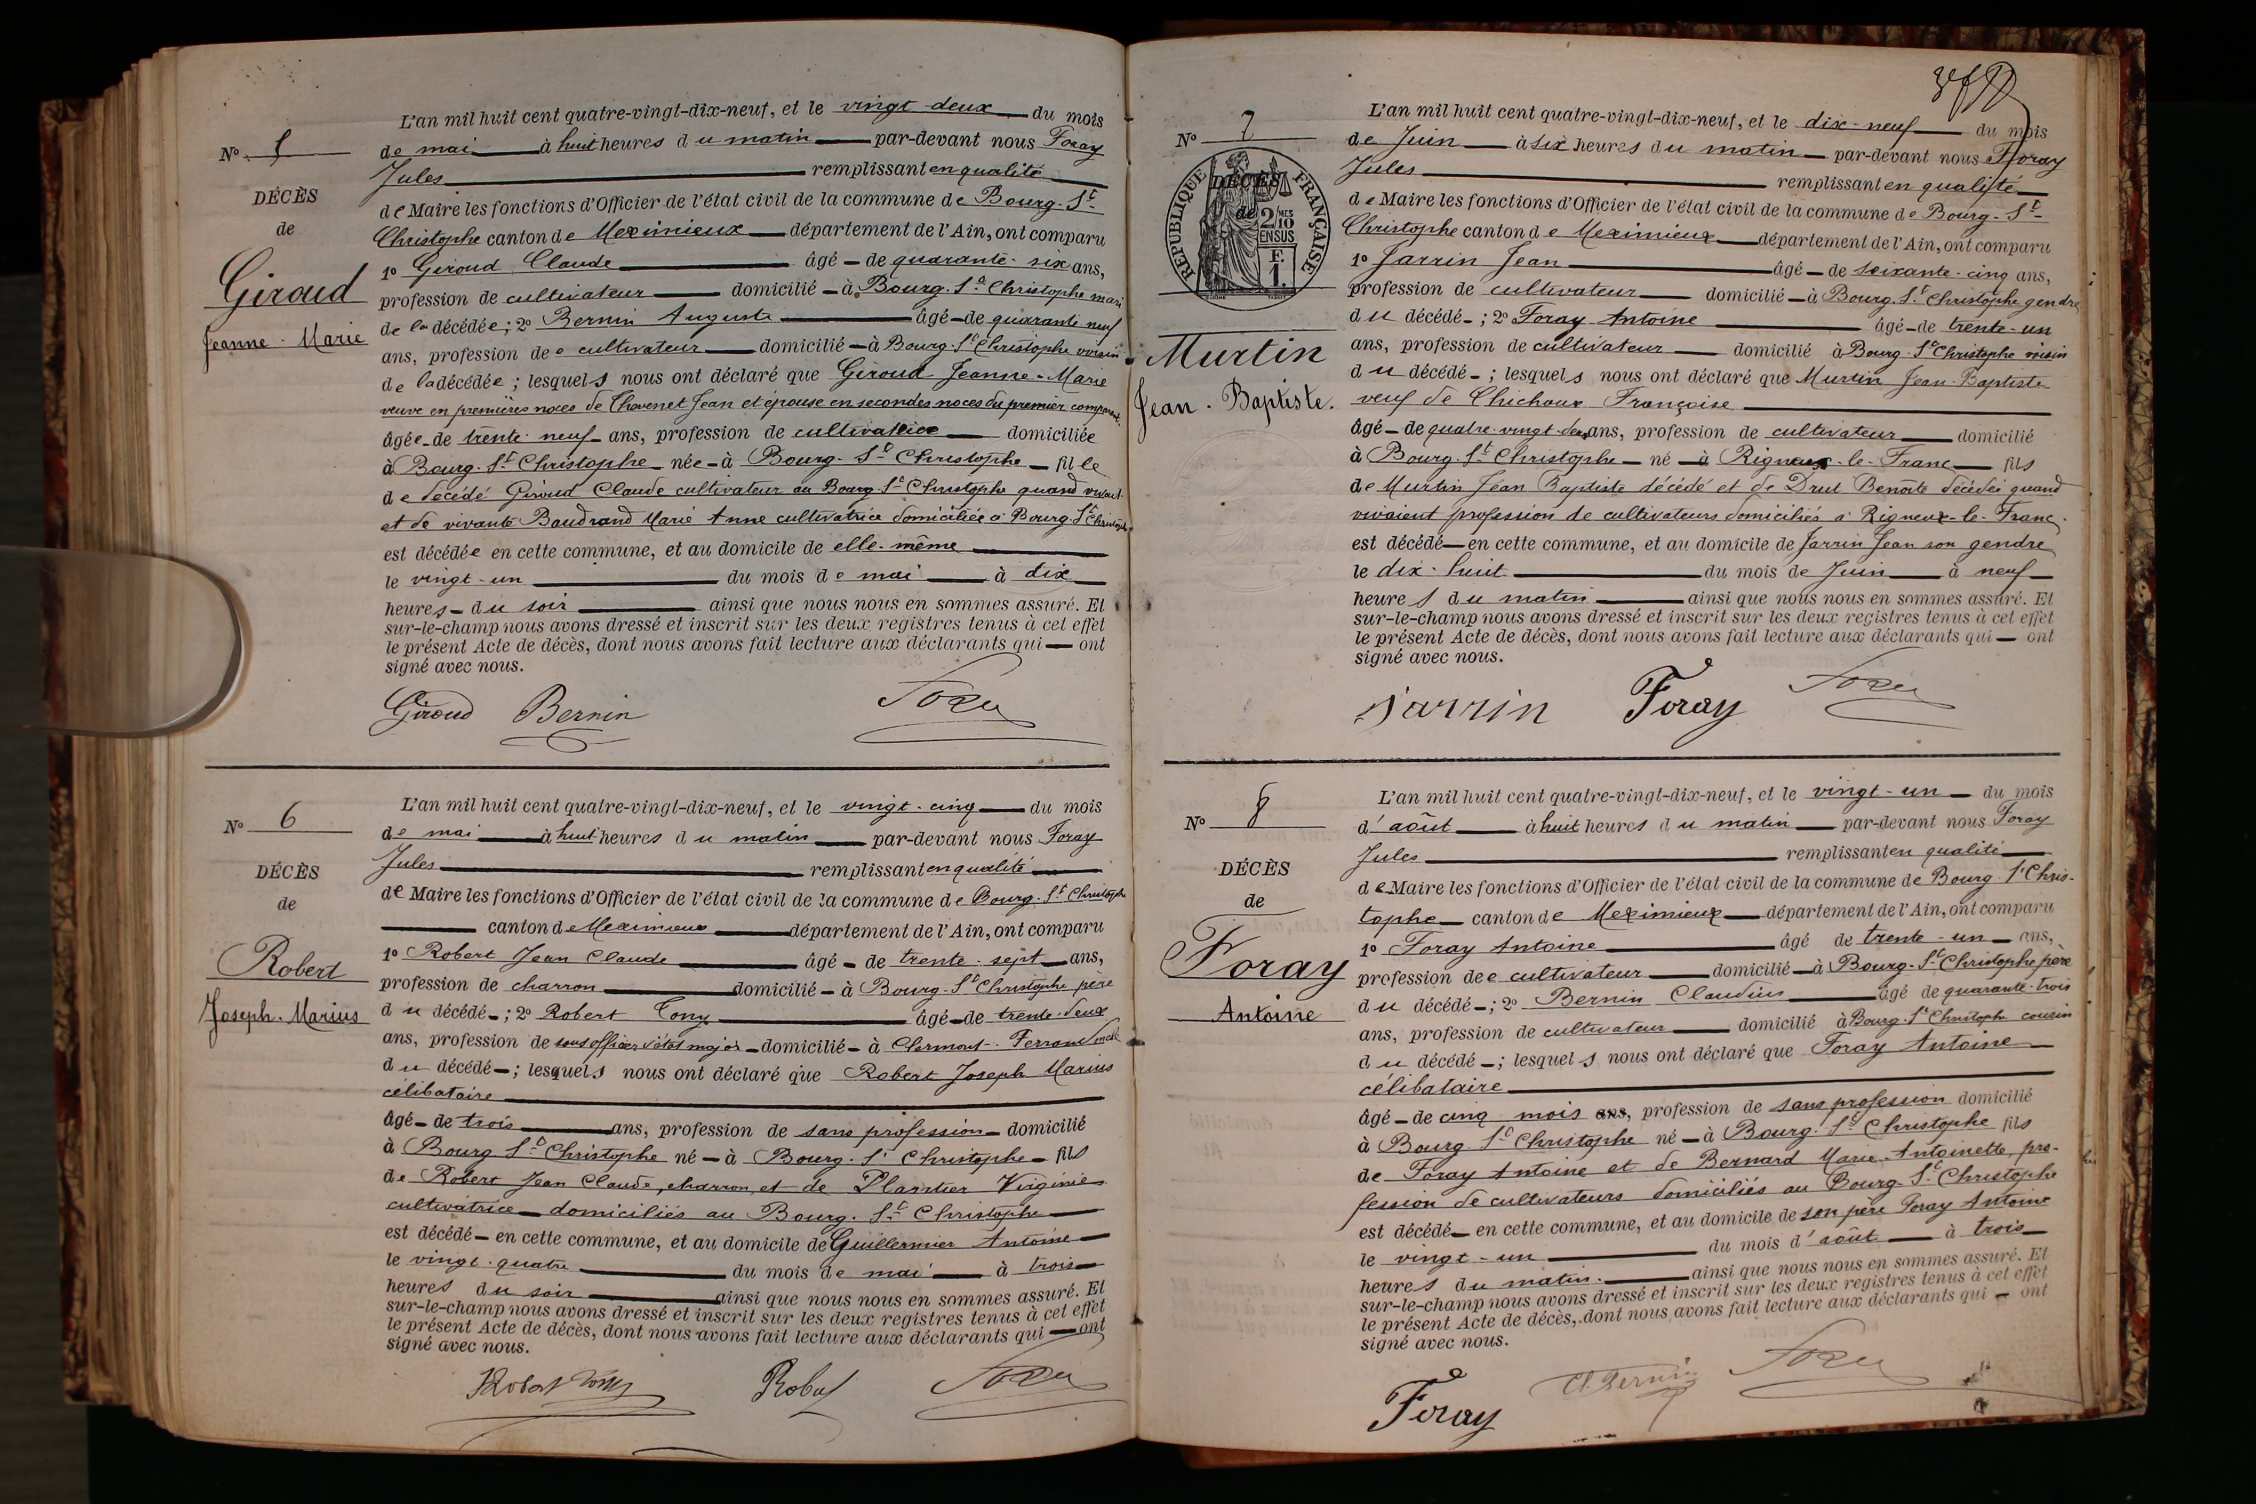 N° 5
DÉCÈS
de
Giroud
Jeanne-Marie
L'an mil huit cent quatre-vingt-dix-neuf, et le vingt-deux du mois
de mai à huit heures du matin par-devant nous Foray
Jules remplissant en qualité
de Maire les fonctions d'Officier de l'état civil de la commune de Bourg-St-
Christophe canton de Meximieux département de l'Ain, ont comparu
1° Giroud Claude âgé de quarante-six ans,
profession de cultivateur domicilié à Bourg-St Christophe mari
de la décédée; 2° Bernin Auguste âgé de quarante neuf
ans, profession de cultivateur domicilié à Bourg-St Christophe voisin
de la décédée; lesquels nous ont déclaré que Giroud Jeanne-Marie
veuve en premières noces de Chavenet Jean et épouse en secondes noces du premier comparant
âgée de trente-neuf ans, profession de cultivatrice domiciliée
à Bourg-St Christophe née à Bourg-St Christophe fille
de décédé Giroud Claude cultivateur au Bourg-St Christophe quand vivant
et de vivante Baudrand Marie Anne cultivatrice domiciliée à Bourg-St Christophe
est décédée en cette commune, et au domicile de elle-même
le vingt-un du mois de mai à dix
heures du soir ainsi que nous nous en sommes assuré. Et
sur-le-champ nous avons dressé et inscrit sur les deux registres tenus à cet effet
le présent Acte de décès, dont nous avons fait lecture aux déclarants qui ont
signé avec nous.
Giroud Bernin Foray
N° 6
DÉCÈS
de
Robert
Joseph-Marius
L'an mil huit cent quatre-vingt-dix-neuf, et le vingt-cinq du mois
de mai à huit heures du matin par-devant nous Foray
Jules remplissant en qualité
de Maire les fonctions d'Officier de l'état civil de la commune de Bourg-St Christophe
canton de Meximieux département de l'Ain, ont comparu
1° Robert Jean Claude âgé de trente-sept ans,
profession de charron domicilié à Bourg-St Christophe père
du décédé; 2° Robert Tony âgé de trente-deux
ans, profession de sous officier d'état major domicilié à Clermont-Ferrand oncle
du décédé; lesquels nous ont déclaré que Robert Joseph Marius
célibataire
âgé de trois ans, profession de sans profession domicilié
à Bourg St Christophe né à Bourg-St Christophe fils
de Robert Jean Claude, charron, et de Plantier Virginie
cultivatrice domiciliés au Bourg-St Christophe
est décédé en cette commune, et au domicile de Guillermier Antoine
le vingt-quatre du mois de mai à trois
heures du soir ainsi que nous nous en sommes assuré. Et
sur-le-champ nous avons dressé et inscrit sur les deux registres tenus à cet effet
le présent Acte de décès, dont nous avons fait lecture aux déclarants qui ont
signé avec nous.
Robert Tony Robert Foray
N° 7
RÉPUBLIQUE FRANÇAISE
DÉCÈS
de
2/10 MES
EN SUS
F.
1.
Murtin
Jean-Baptiste.
L'an mil huit cent quatre-vingt-dix-neuf, et le dix-neuf du mois
de Juin à six heures du matin par-devant nous Foray
Jules remplissant en qualité
de Maire les fonctions d'Officier de l'état civil de la commune de Bourg-St-
Christophe canton de Meximieux département de l'Ain, ont comparu
1° Jarrin Jean âgé de soixante-cinq ans,
profession de cultivateur domicilié à Bourg-St Christophe gendre
du décédé; 2° Foray Antoine âgé de trente-un
ans, profession de cultivateur domicilié à Bourg-St Christophe voisin
du décédé; lesquels nous ont déclaré que Murtin Jean-Baptiste
veuf de Chichoux Françoise
âgé de quatre-vingt-deux ans, profession de cultivateur domicilié
à Bourg-St Christophe né à Rigneux-le-Franc fils
de Murtin Jean Baptiste décédé et de Drut Benoîte décédée quand
vivaient profession de cultivateurs domiciliés à Rigneux-le-Franc
est décédé en cette commune, et au domicile de Jarrin Jean son gendre
le dix-huit du mois de Juin à neuf
heures du matin ainsi que nous nous en sommes assuré. Et
sur-le-champ nous avons dressé et inscrit sur les deux registres tenus à cet effet
le présent Acte de décès, dont nous avons fait lecture aux déclarants qui ont
signé avec nous.
Jarrin Foray Foray
N° 8
DÉCÈS
de
Foray
Antoine
L'an mil huit cent quatre-vingt-dix-neuf, et le vingt-un du mois
d'août à huit heures du matin par-devant nous Foray
Jules remplissant en qualité
de Maire les fonctions d'Officier de l'état civil de la commune de Bourg-St Chris-
tophe canton de Meximieux département de l'Ain, ont comparu
1° Foray Antoine âgé de trente-un ans,
profession de cultivateur domicilié à Bourg-St Christophe père
du décédé; 2° Bernin Claudius âgé de quarante-trois
ans, profession de cultivateur domicilié à Bourg-St Christophe cousin
du décédé; lesquels nous ont déclaré que Foray Antoine
célibataire
âgé de cinq mois ans, profession de sans profession domicilié
à Bourg St Christophe né à Bourg-St Christophe fils
de Foray Antoine et de Bernard Marie-Antoinette, pro-
fession de cultivateurs domiciliés au Bourg-St Christophe
est décédé en cette commune, et au domicile de son père Foray Antoine
le vingt-un du mois d'août à trois
heures du matin. ainsi que nous nous en sommes assuré. Et
sur-le-champ nous avons dressé et inscrit sur les deux registres tenus à cet effet
le présent Acte de décès, dont nous avons fait lecture aux déclarants qui ont
signé avec nous.
Foray Cl. Bernin Foray